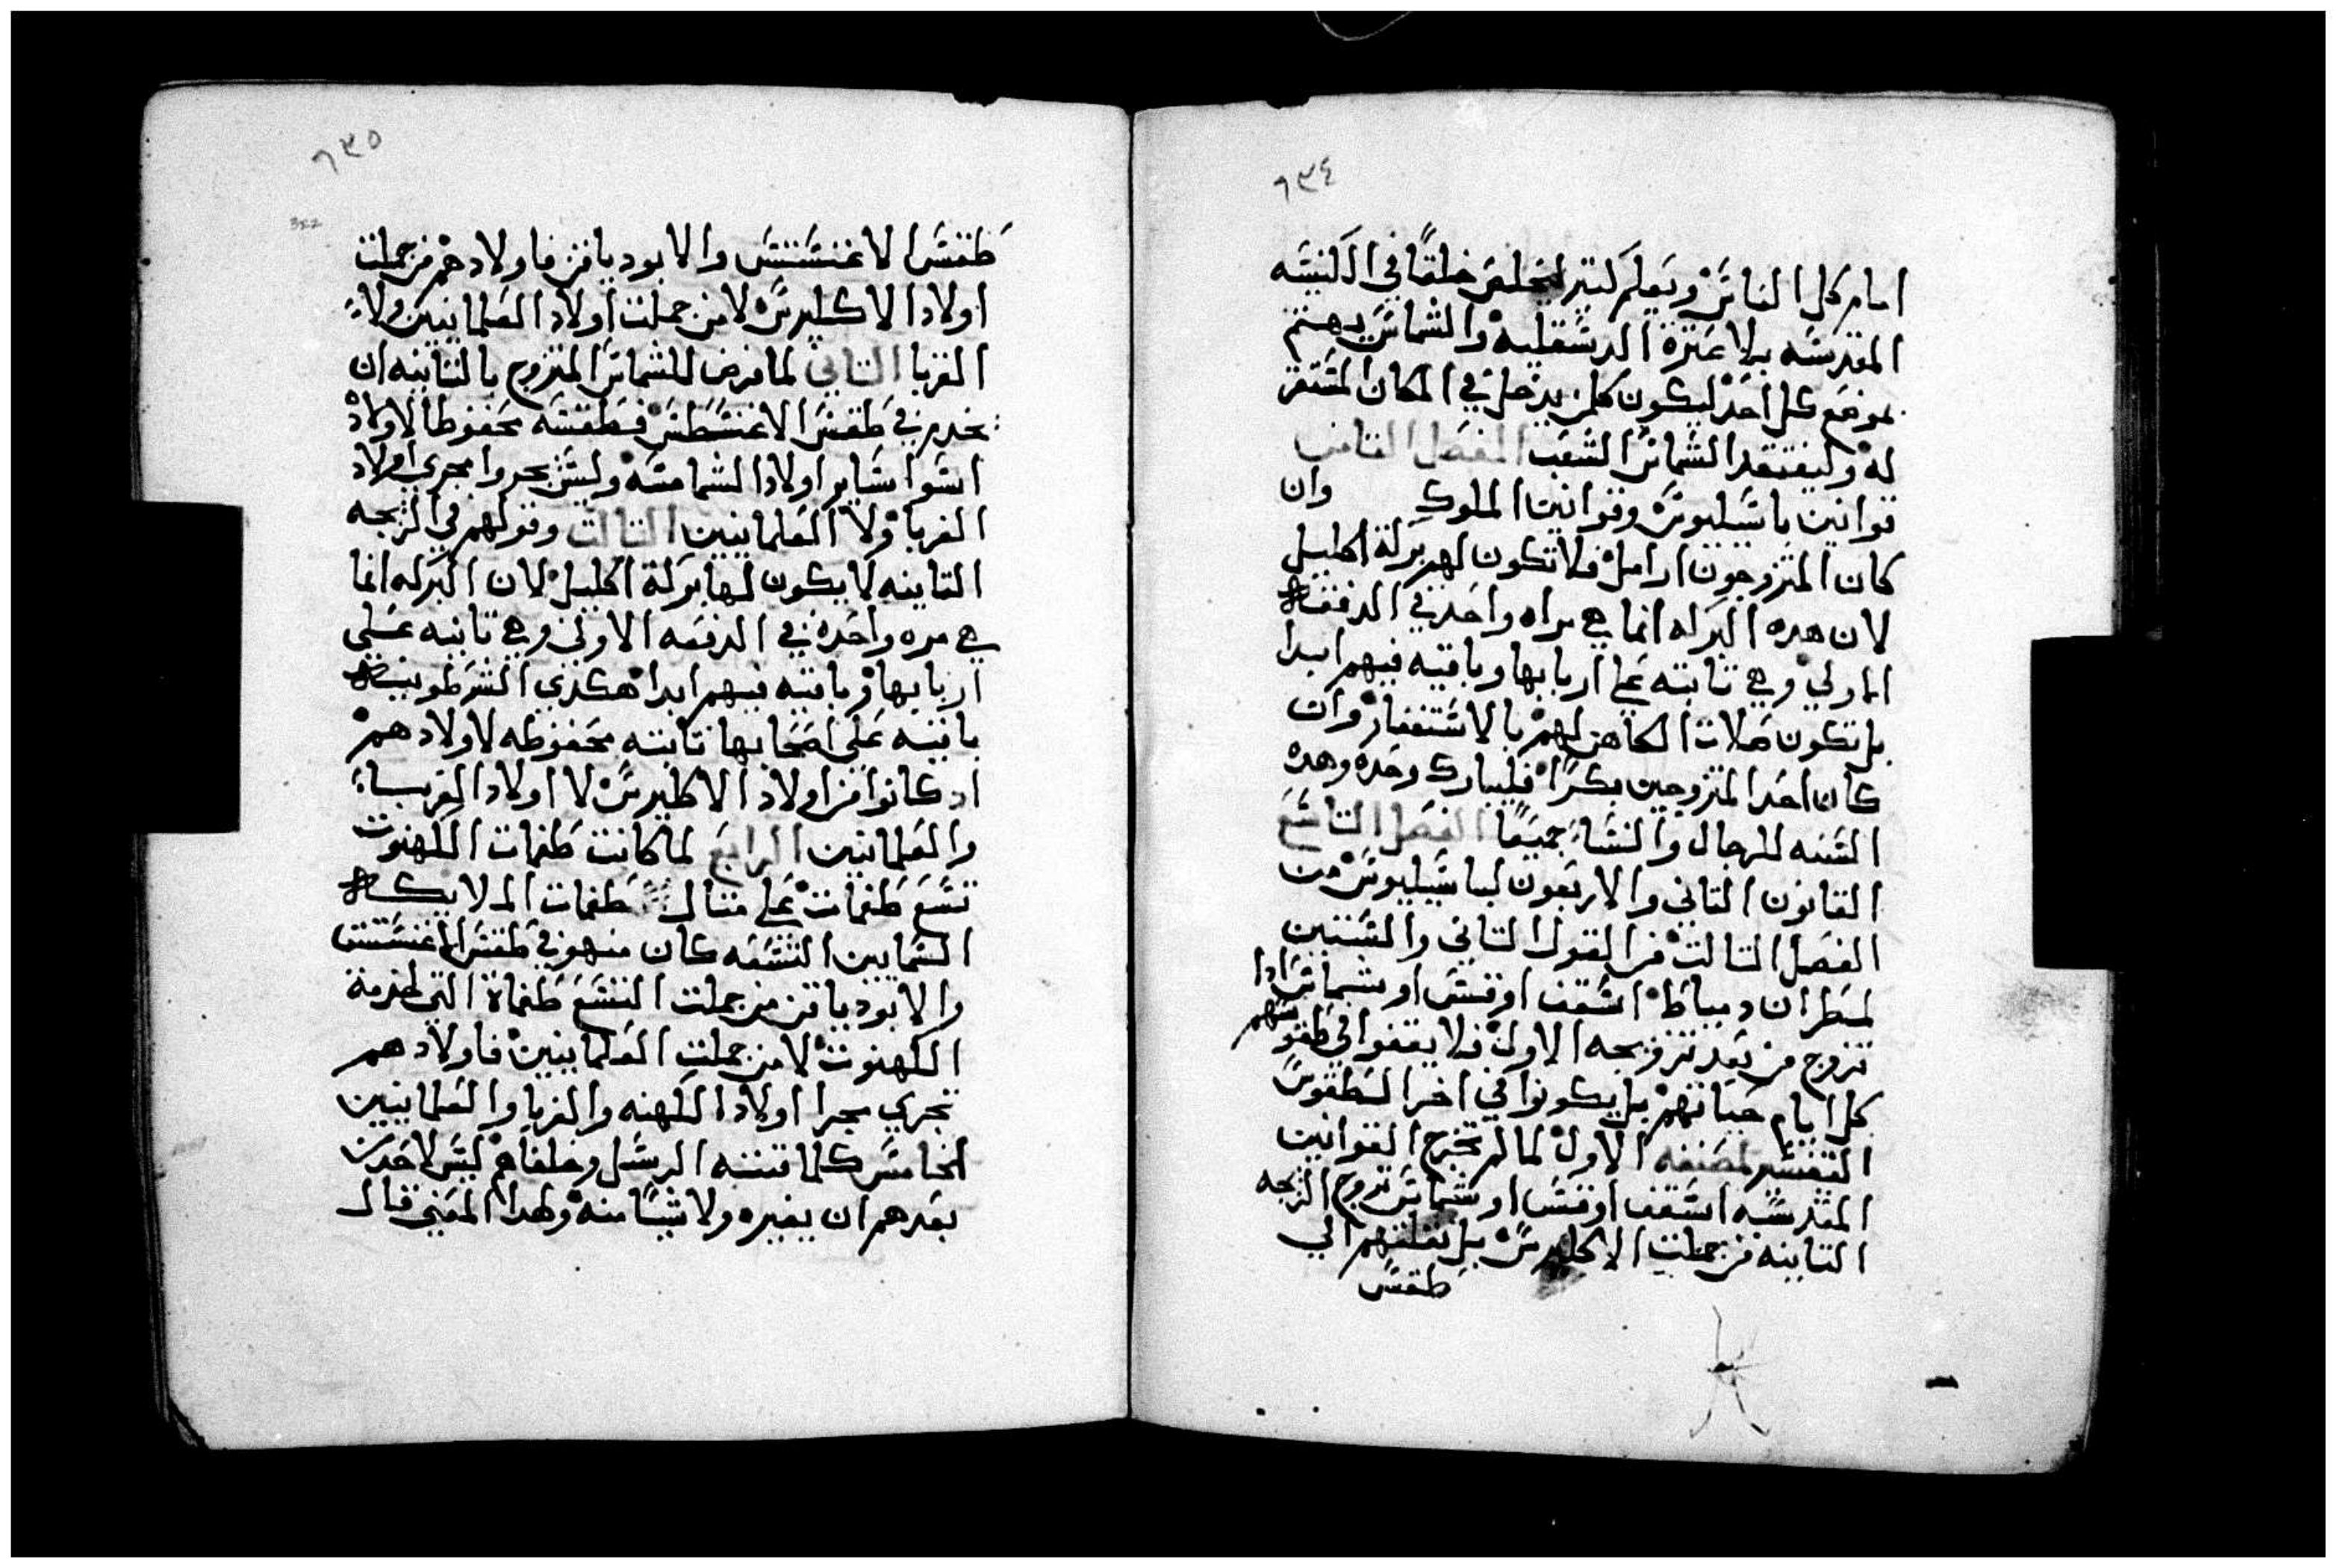 ٦٣٤
امام كل الناس ويعلم كتير لتحليص خلقًا في الكنيسه
المقدسه بلا عترة الدسقليه والشماس يهتم
بموضع كل احد ليكون كلمن يدخل في المكان المستقر
له وليفتقد الشماس الشعب الفصل التامن
قوانين باسيليوس وقوانين الملوك وان
كان المتزوجون ارامل فلا تكون لهم بركة اكليل
لان هده البركه انما هي مراه واحده في الدفعه
الاولي وهي تابته علي اربابها وباقيه فيهم ابدا
بل تكون صلات الكاهن لهم بالاستغفار وان
كان احد المتزوجين بكرًا فليبارك وحده وهده
السنه للرجال والنساء جميعًا الفصل التاسع
القانون التاني والاربعون لباسيليوس من
الفصل التالت من القول التاني والستين
لمطران دمياط اسقف او قس او شماس ادا
تزوج من بعد تزويجه الاول فلا يقفوا في طقوسهم
كل ايام حياتهم بل يكونوا في اخر الطقوس
التفسير لمصنفه الاول لما لم تخرج القوانين
المقدسه اسقف او قس او شماس تزوج الزيجه
التانيه من جملت الاكليرس بل نقلتهم الي
طقس
٦٣٥
322
طقس الاغنسطس والابودياقن فاولادهم من جملت
اولاد الاكليرس لا من جملت اولاد العلمانيين ولا
الغربا التاني لما فرض للشماس المتزوج بالتانيه ان
يخدم في طقس الاغنسطس فطقسه محفوظا لاولاد
اسوا ساير اولاد الشمامسه وليس يجروا مجري اولاد
الغربا ولا العلمانيين التالت وقولهم في الزيجه
التانيه لا يكون لها بركة اكليل لان البركه انما
هي مره واحده في الدفعه الاولي وهي تابته علي
اربابها وباقيه فيهم ابدا هكدي الشرطونيه
باقيه علي اصحابها تابته محفوظه لاولادهم
اد كانوا من اولاد الاكليرس لا اولاد الغرباء
والعلمانيين الرابع لما كانت طغمات الكهنوت
تسع طغمات علي متال طغمات الملايكه
السمايين التسعه كان منهم في طقس الاغنسطس
والابودياقن من جملت التسع طغماة التي لخدمة
الكهنوت لا من جملت العلمانيين فاولادهم
تجري مجرا اولاد الكهنه والغربا والعلمانيين
الخامس كلما قننه الرسل وخلفاهم ليس لاحد من
بعدهم ان يغيره ولا شيًا منه ولهدا المعني قال